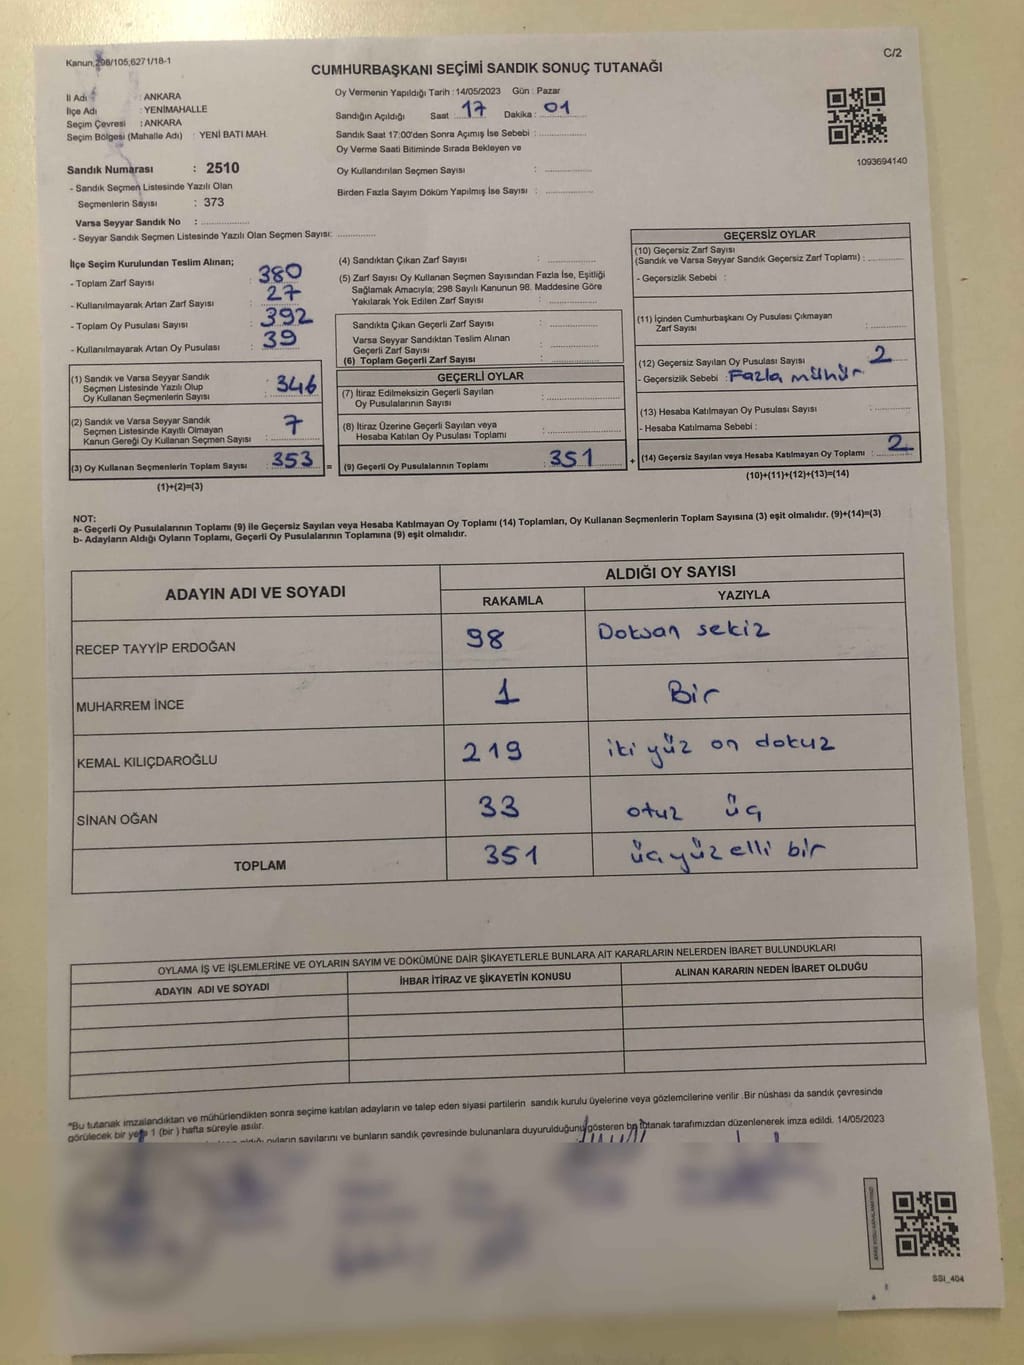 Kanun,298/105,6271/18-1
C/2
CUMHURBAŞKANI SEÇİMİ SANDIK SONUÇ TUTANAĞI
İl Adı : ANKARA
İlçe Adı : YENİMAHALLE
Seçim Çevresi : ANKARA
Seçim Bölgesi (Mahalle Adı) : YENİ BATI MAH.
Oy Vermenin Yapıldığı Tarih : 14/05/2023 Gün : Pazar
Sandığın Açıldığı Saat : 17 Dakika : 01
Sandık Saat 17:00'den Sonra Açımış İse Sebebi :
Oy Verme Saati Bitiminde Sırada Bekleyen ve
Oy Kullandırılan Seçmen Sayısı :
Birden Fazla Sayım Döküm Yapılmış İse Sayısı :
1093694140
Sandık Numarası : 2510
- Sandık Seçmen Listesinde Yazılı Olan
Seçmenlerin Sayısı : 373
Varsa Seyyar Sandık No :
- Seyyar Sandık Seçmen Listesinde Yazılı Olan Seçmen Sayısı:
İlçe Seçim Kurulundan Teslim Alınan;
- Toplam Zarf Sayısı : 380
- Kullanılmayarak Artan Zarf Sayısı : 27
- Toplam Oy Pusulası Sayısı : 392
- Kullanılmayarak Artan Oy Pusulası : 39
(1) Sandık ve Varsa Seyyar Sandık
Seçmen Listesinde Yazılı Olup
Oy Kullanan Seçmenlerin Sayısı : 346
(2) Sandık ve Varsa Seyyar Sandık
Seçmen Listesinde Kayıtlı Olmayan
Kanun Gereği Oy Kullanan Seçmen Sayısı : 7
(3) Oy Kullanan Seçmenlerin Toplam Sayısı : 353 =
(1)+(2)=(3)
(4) Sandıktan Çıkan Zarf Sayısı :
(5) Zarf Sayısı Oy Kullanan Seçmen Sayısından Fazla İse, Eşitliği
Sağlamak Amacıyla; 298 Sayılı Kanunun 98. Maddesine Göre
Yakılarak Yok Edilen Zarf Sayısı :
Sandıkta Çıkan Geçerli Zarf Sayısı :
Varsa Seyyar Sandıktan Teslim Alınan
Geçerli Zarf Sayısı :
(6) Toplam Geçerli Zarf Sayısı :
GEÇERLİ OYLAR
(7) İtiraz Edilmeksizin Geçerli Sayılan
Oy Pusulalarının Sayısı :
(8) İtiraz Üzerine Geçerli Sayılan veya
Hesaba Katılan Oy Pusulası Toplamı :
(9) Geçerli Oy Pusulalarının Toplamı : 351 +
GEÇERSİZ OYLAR
(10) Geçersiz Zarf Sayısı
(Sandık ve Varsa Seyyar Sandık Geçersiz Zarf Toplamı) :
- Geçersizlik Sebebi :
(11) İçinden Cumhurbaşkanı Oy Pusulası Çıkmayan
Zarf Sayısı :
(12) Geçersiz Sayılan Oy Pusulası Sayısı : 2
- Geçersizlik Sebebi : Fazla mühür
(13) Hesaba Katılmayan Oy Pusulası Sayısı :
- Hesaba Katılmama Sebebi :
(14) Geçersiz Sayılan veya Hesaba Katılmayan Oy Toplamı : 2
(10)+(11)+(12)+(13)=(14)
NOT:
a- Geçerli Oy Pusulalarının Toplamı (9) ile Geçersiz Sayılan veya Hesaba Katılmayan Oy Toplamı (14) Toplamları, Oy Kullanan Seçmenlerin Toplam Sayısına (3) eşit olmalıdır. (9)+(14)=(3)
b- Adayların Aldığı Oyların Toplamı, Geçerli Oy Pusulalarının Toplamına (9) eşit olmalıdır.
ADAYIN ADI VE SOYADI ALDIĞI OY SAYISI
RAKAMLA YAZIYLA
RECEP TAYYİP ERDOĞAN 98 Doksan sekiz
MUHARREM İNCE 1 Bir
KEMAL KILIÇDAROĞLU 219 iki yüz on dokuz
SİNAN OĞAN 33 otuz üç
TOPLAM 351 üçyüz elli bir
OYLAMA İŞ VE İŞLEMLERİNE VE OYLARIN SAYIM VE DÖKÜMÜNE DAİR ŞİKAYETLERLE BUNLARA AİT KARARLARIN NELERDEN İBARET BULUNDUKLARI
ADAYIN ADI VE SOYADI İHBAR İTİRAZ VE ŞİKAYETİN KONUSU ALINAN KARARIN NEDEN İBARET OLDUĞU
"Bu tutanak imzalandıktan ve mühürlendikten sonra seçime katılan adayların ve talep eden siyasi partilerin sandık kurulu üyelerine veya gözlemcilerine verilir .Bir nüshası da sandık çevresinde
görülecek bir yere 1 (bir ) hafta süreyle asılır.
oyların sayılarını ve bunların sandık çevresinde bulunanlara duyurulduğunu gösteren bu tutanak tarafımızdan düzenlenerek imza edildi. 14/05/2023
SSI_404